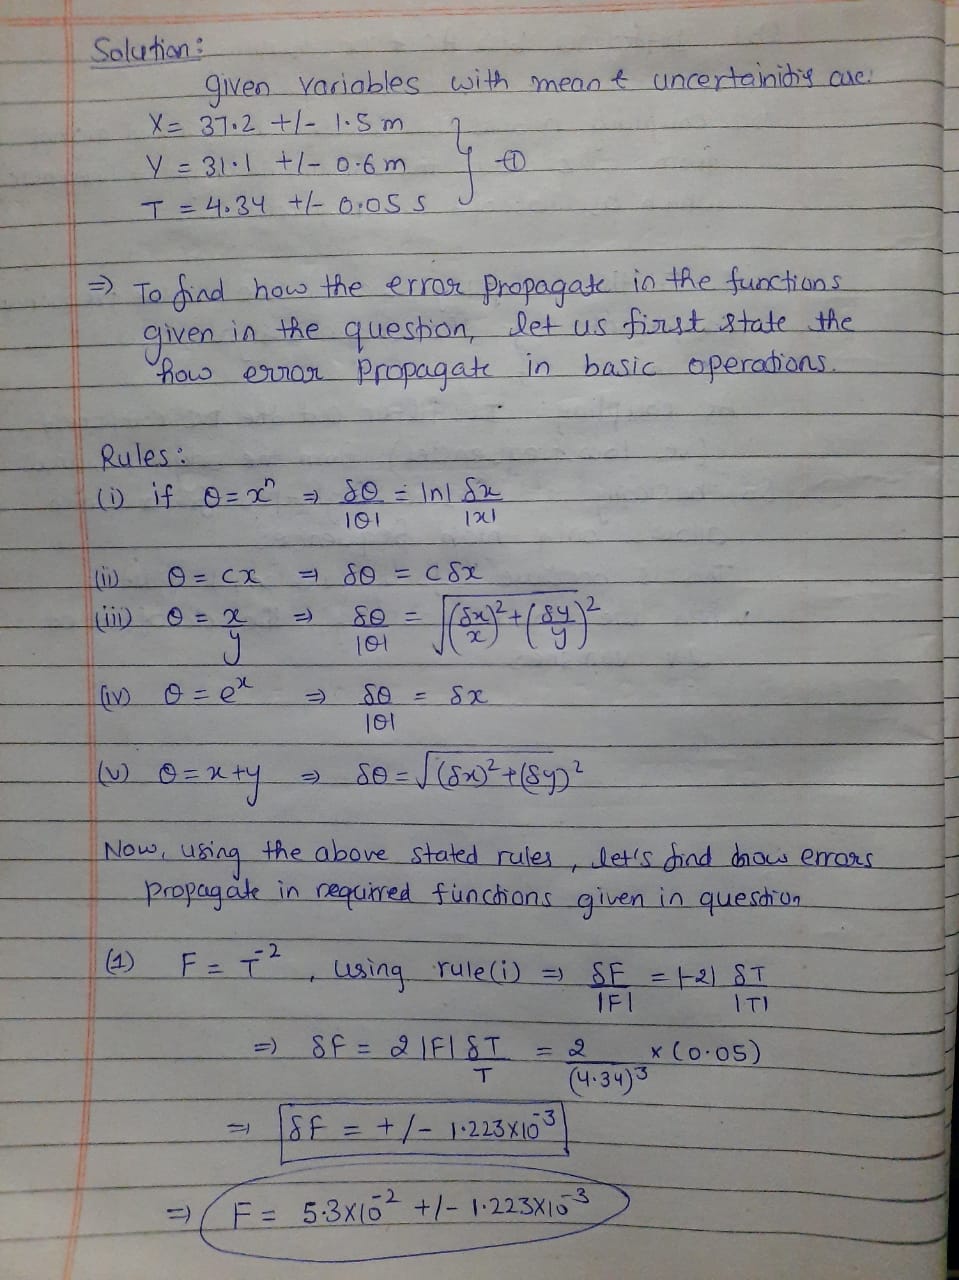 Solution:
given variables with mean & uncertainitis are:
X = 37.2 +/- 1.5 m
Y = 31.1 +/- 0.6 m } ①
T = 4.34 +/- 0.05 s
⇒ To find how the error propagate in the functions
given in the question, let us first state the
how error propagate in basic operations.
Rules:
(i) if Θ = x^n ⇒ δΘ/|Θ| = |n| δx/|x|
(ii) Θ = cx ⇒ δΘ = c δx
(iii) Θ = x/y ⇒ δΘ/|Θ| = √((δx/x)² + (δy/y)²)
(iv) Θ = e^x ⇒ δΘ/|Θ| = δx
(v) Θ = x+y ⇒ δΘ = √((δx)² + (δy)²)
Now, using the above stated rules, let's find how errors
propagate in required functions given in question
(1) F = T^-2, using rule(i) ⇒ δF/|F| = |-2| δT/|T|
⇒ δF = 2 |F| δT/T = 2/(4.34)³ × (0.05)
⇒ δF = +/- 1.223×10^-3
⇒ F = 5.3×10^-2 +/- 1.223×10^-3